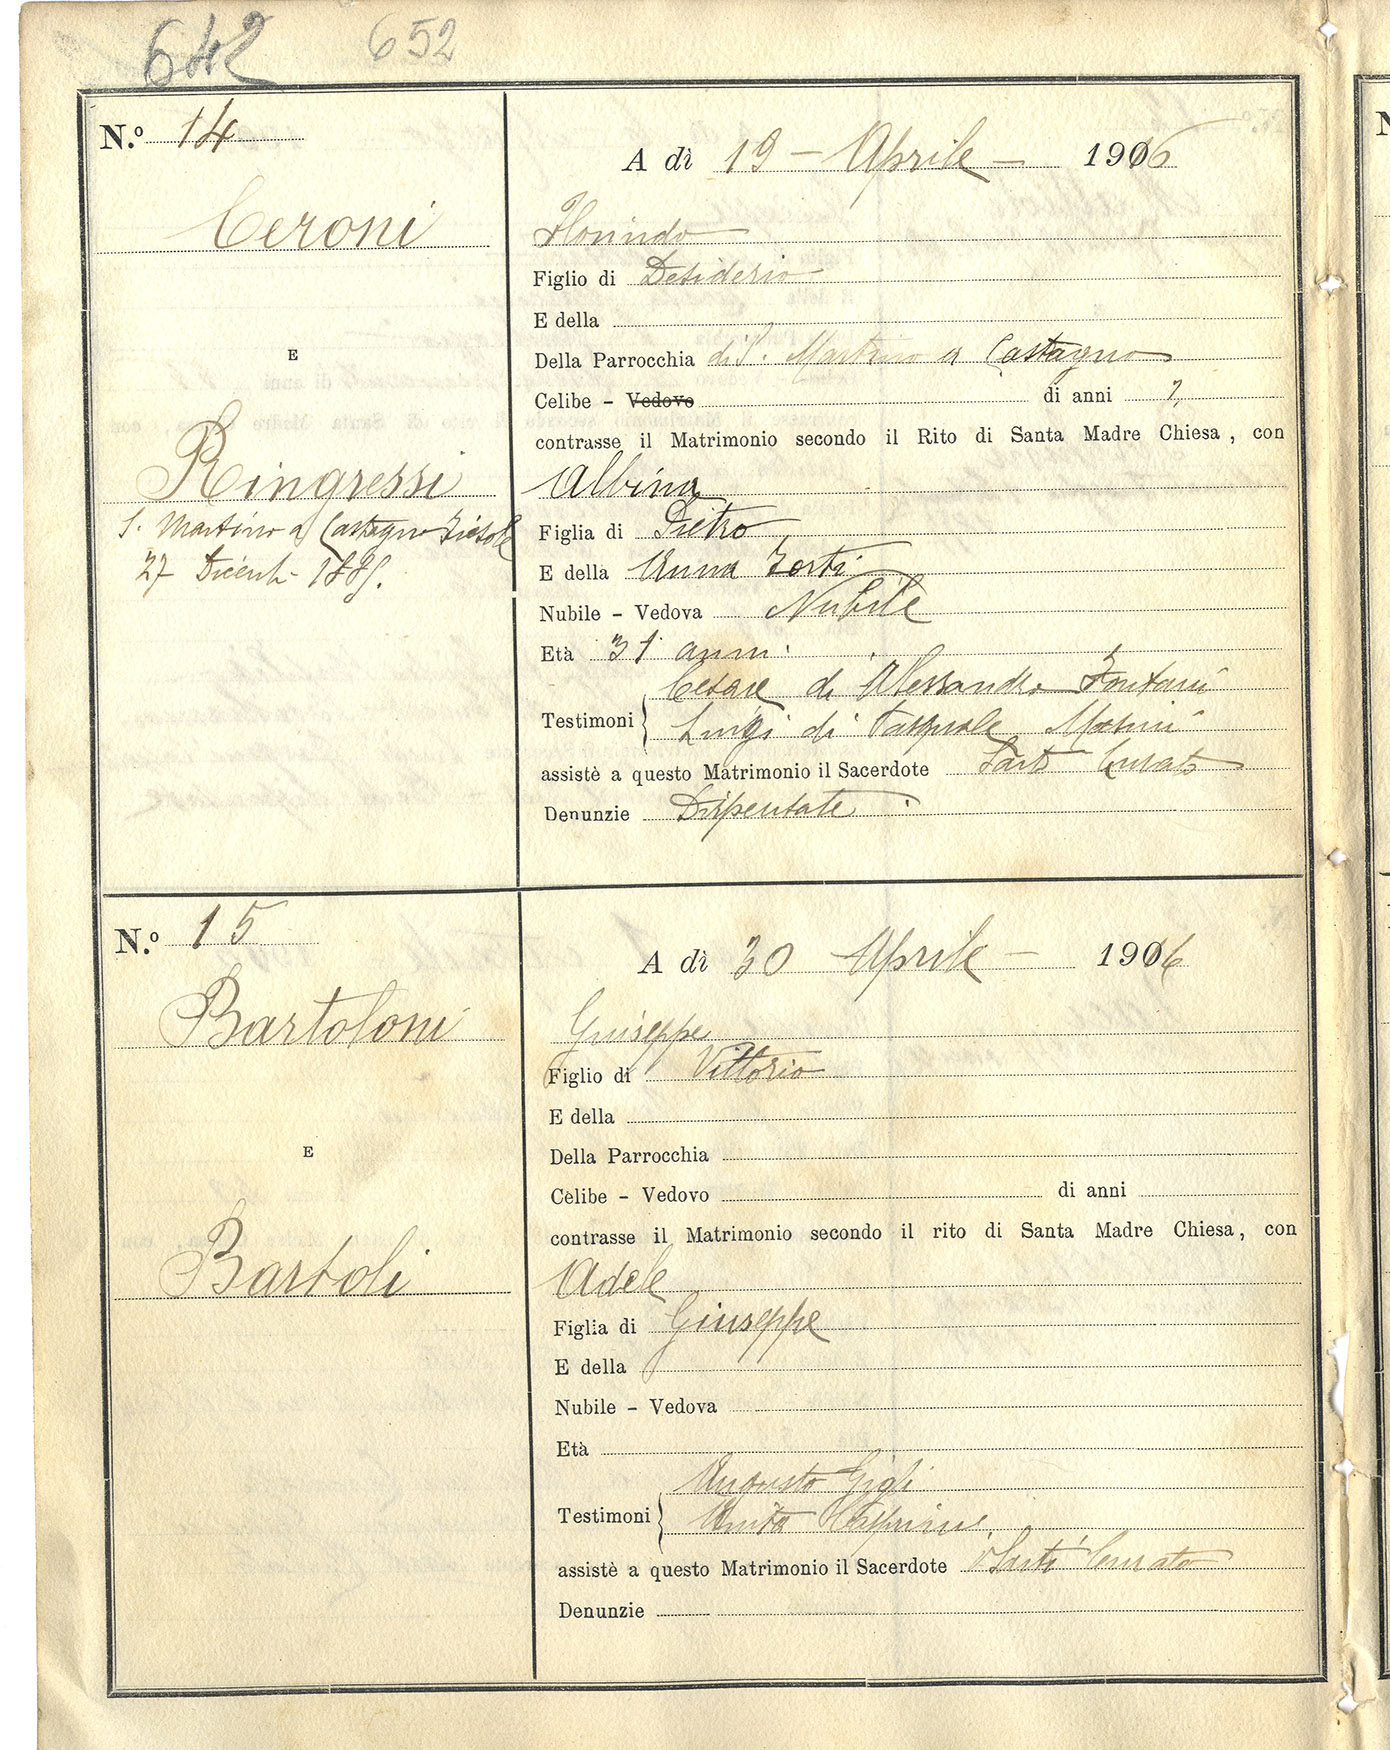 642 652
N.º 14
A dì 19 - Aprile - 1916
Ceroni
Florindo
Figlio di Desiderio
E della
E
Della Parrocchia di S. Martino a Castagno
Celibe - Vedovo di anni ?
contrasse il Matrimonio secondo il Rito di Santa Madre Chiesa, con
Ringressi
Albina
S. Martino a Castagno Fiesole
Figlia di Pietro
27 Dicemb- 1885.
E della Anna Forti
Nubile - Vedova Nubile
Età 31 anni.
Cesare di Alessandro Fontani
Testimoni
Luigi di Pasquale Masini
assistè a questo Matrimonio il Sacerdote Sarti Curato
Denunzie Dispensate
N.º 15
A dì 30 Aprile - 1916
Bartoloni
Giuseppe
Figlio di Vittorio
E della
E
Della Parrocchia
Celibe - Vedovo di anni
contrasse il Matrimonio secondo il rito di Santa Madre Chiesa, con
Bartoli
Adele
Figlia di Giuseppe
E della
Nubile - Vedova
Età
Augusto Gigli
Testimoni
assistè a questo Matrimonio il Sacerdote Sarti Curato
Denunzie